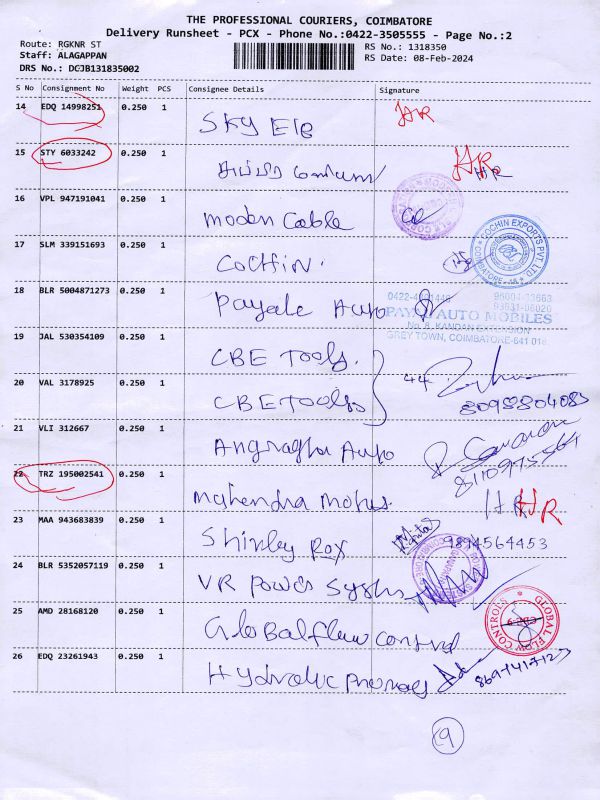 THE PROFESSIONAL COURIERS, COIMBATORE
Delivery Runsheet - PCX - Phone No.:0422-3505555 - Page No.:2
Route: RGKNR ST
RS No.: 1318350
Staff: ALAGAPPAN
RS Date: 08-Feb-2024
DRS No.: DCJB131835002
S No Consignment No Weight PCS Consignee Details Signature
14 EDQ 14998251 0.250 1 SKY Ele
15 STY 6033242 0.250 1 HR HR
16 VPL 947191041 0.250 1 Modern Cable
17 SLM 339151693 0.250 1 COCHIN.
COCHIN EXPORTS PVT LTD
COIMBATORE
18 BLR 5004871273 0.250 1 Payale Auto
PAYAL AUTO MOBILES
No. 8, KANDAN EXTENSION
GREY TOWN, COIMBATORE-641 018
19 JAL 530354109 0.250 1 CBE Tools.
20 VAL 3178925 0.250 1 CBE Tools 44
21 VLI 312667 0.250 1 Auto
22 TRZ 195002541 0.250 1 Mahendra Motors HR HR
23 MAA 943683839 0.250 1 Shirley Rox 9894564453
24 BLR 5352057119 0.250 1 VR Power Systms
25 AMD 28168120 0.250 1 Global flow control
GLOBAL FLOW CONTROLS
26 EDQ 23261943 0.250 1
19